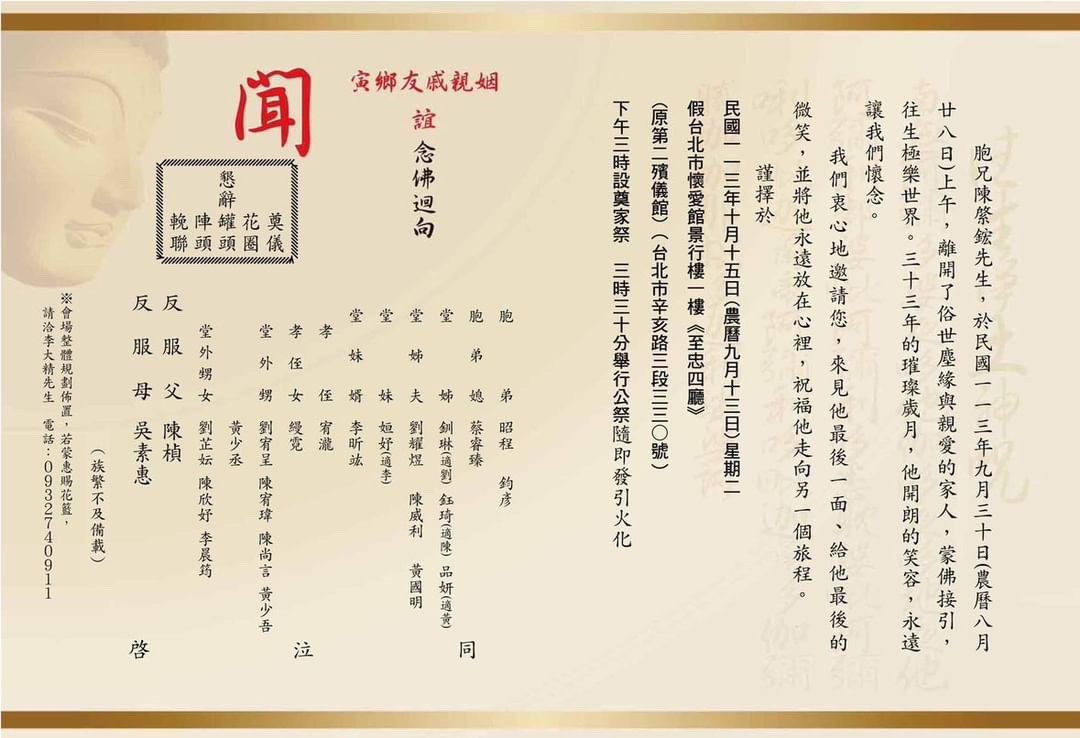 胞兄陳縈鋐先生，於民國一一三年九月三十日(農曆八月
廿八日)上午，離開了俗世塵緣與親愛的家人，蒙佛接引，
往生極樂世界。三十三年的璀璨歲月，他開朗的笑容，永遠
讓我們懷念。
我們衷心地邀請您，來見他最後一面、給他最後的
微笑，並將他永遠放在心裡，祝福他走向另一個旅程。
謹擇於
民國一一三年十月十五日(農曆九月十三日)星期二
假台北市懷愛館景行樓一樓《至忠四廳》
(原第二殯儀館)(台北市辛亥路三段三三〇號)
下午三時設奠家祭　三時三十分舉行公祭隨即發引火化
姻親戚友鄉寅
誼念佛迴向
聞
懇辭
奠儀
花圈
罐頭
陣頭
輓聯
胞弟 昭程 鈞彥
胞弟媳 蔡睿臻
堂姊 釧琳(適劉) 鈺琦(適陳) 品妍(適黃)
堂姊夫 劉耀煜 陳威利 黃國明
堂妹 姮妤(適李)
堂妹婿 李昕竑
孝侄 宥瀧
孝侄女 縵霓
堂外甥 劉宥呈 陳宥瑋 陳尚言 黃少吾
黃少丞
堂外甥女 劉芷妘 陳欣妤 李晨筠
反服父 陳楨
反服母 吳素惠
(族繁不及備載)
同泣啓
※會場整體規劃佈置，若蒙惠賜花籃，
請洽李大精先生 電話：0932740911